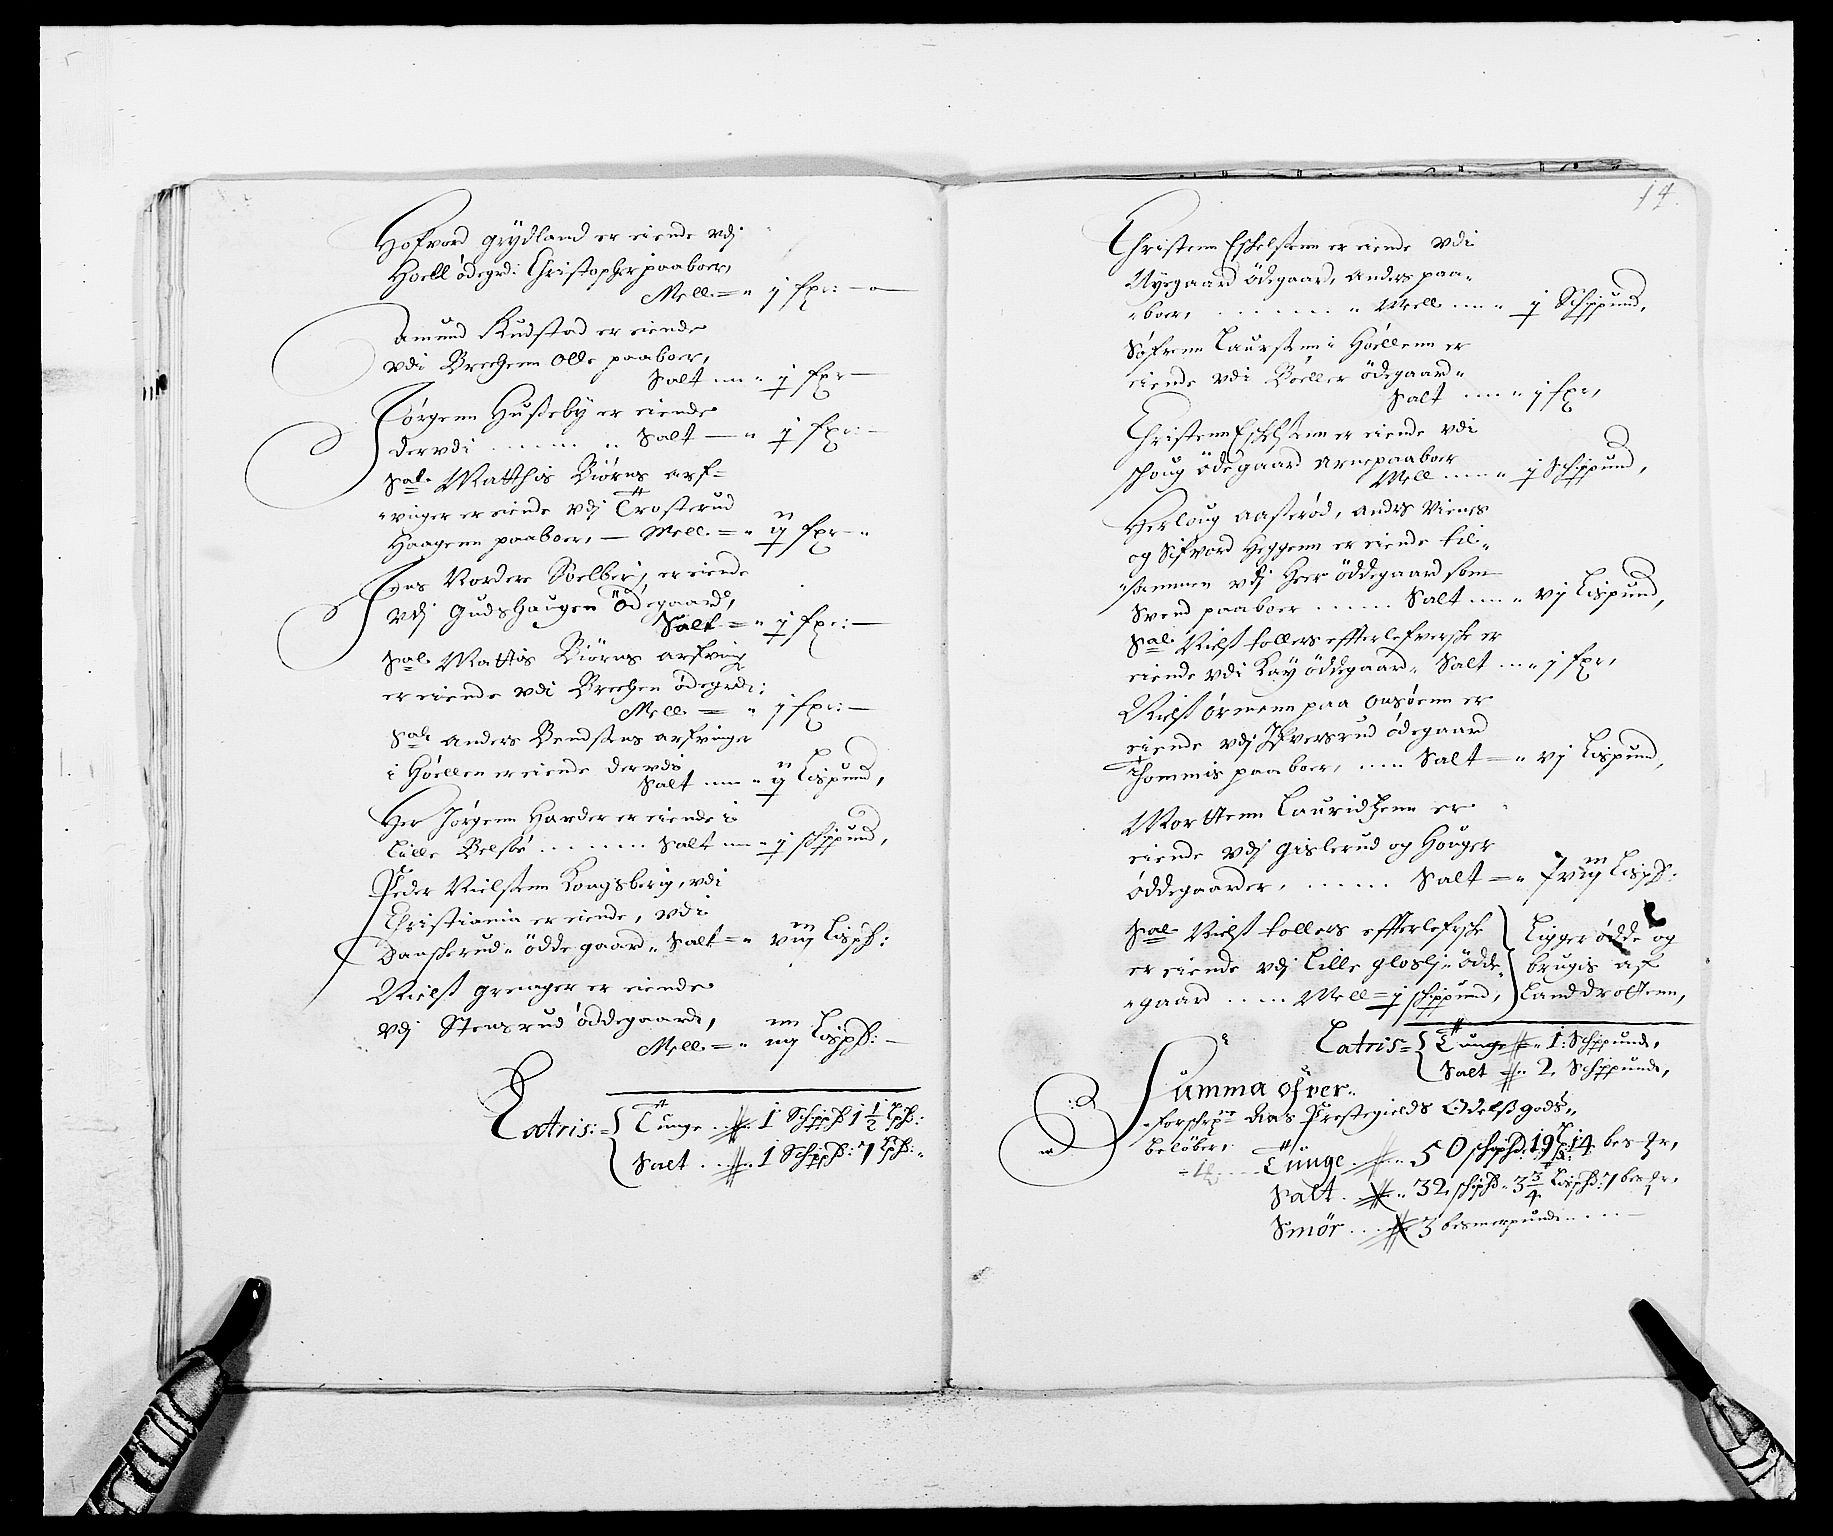 Hofvord Grydland er eiende vdj
Hoell ödegrd: Christopher paaboer,
Mell = " j fxr: — o —
Amund Rudstad er eiende
vdi Brechem Olle paaboer,
Salt — " j fxr —
Jörgenn Husseby er eiende
dervdi ....... Salt — " j fxr: —
Sal: Matthis Biörns arf-
"vinger er eiende vdj Trosterud
Haagenn paaboer, — Mell = " ij fxr — "
Jens Vordere Soelberj, er eiende
vdj Gudshaugen Ödegaard,
Salt = " j fxr: —
Sal: Mattis Biörns arfving
er eiende vdi Brechen ödegrd:
Mell = " j fxr: —
Sal: Anders Bendtsens arfvinger
i Höellen er eiende dervdi
Salt — " ij Lispund,
Her Jörgenn Harder er eiende i
Lille Belsbö ....... Salt — " j schippund,
Peder Nielssenn Kongsberig, vdi
Christiania er eiende, vdi
Danskerud " ödde gaard " Salt = " viij Lispd:
Nielss Grenager er eiende
vdj Stensrud öddegaard,
Mell = " iiij Lispd: —
Latris: = Tunge .. 1 Schippd 1 1/2 Lpd:
Salt .. 1 Schippd: 7 Lpd: "
14.
Christenn Eschelssenn er eiende vdi
Nyegaard Ödegaard, Anders paa-
"boer, ........ Mell .... " j Schippund,
Söfrenn Laurssenn i Höellenn er
eiende vdi Böeller ödegaard "
Salt .... " j fxr,
Christenn Eschelssenn er eiende vdi
schoug ödegaard Arne paaboer
Mell ..... " j Schippund,
Herloug Aasseröd, Anders Viens
og Sifvord Heggenn er eiende til-
"sammen vdj Heer öddegaard som
Svend paaboer ...... Salt .... " vj Lispund,
Sal: Nielss tollers effterlefversche er
eiende vdi Kaÿ öddegaard " Salt ... " j fxr,
Nielss Örmenn paa Onsöenn er
eiende vdj Ifversrud ödegaard
Thommis paaboer, .... Salt = " vj Lispund,
Morttenn Lauridtzenn er
eiende vdj Gislerud og Houger
öddegaarder, ...... Salt = " xviij Lispd:
Sal: Nielss tollers effterlefvsche
er eiende vdj Lille Gloslj " ödde-
"gaard ..... Mell = j schippund,
Ligger ödde og
brugis af
Landdrottenn,
Latris = Tunge = " 1: Schippund,
Salt = " 2, Schippund,
Summa ofver "
forschrne Aas Prestegields Odelss gods "
belöber,
Tunge .. 50 schipd: 19 Lpd: 14 bes: Pr,
Salt .. 32 schipd " 3 3/4 Lispd: 7 bes: Pr,
Smör ... 3 besmerpund ....